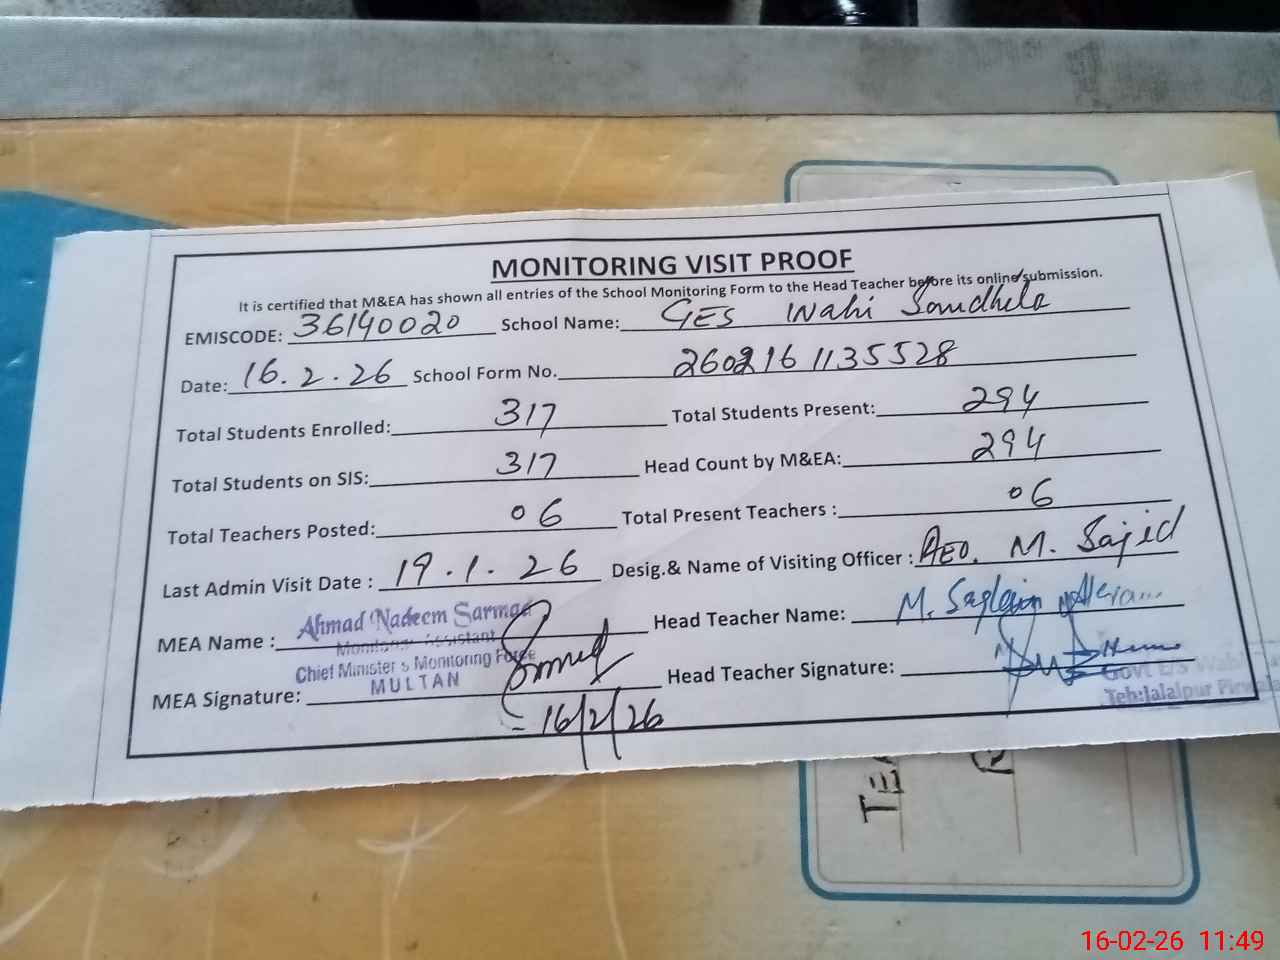 MONITORING VISIT PROOF
It is certified that M&EA has shown all entries of the School Monitoring Form to the Head Teacher before its online submission.
EMISCODE: 36140020 School Name: GES Wahi Sandhila
Date: 16.2.26 School Form No. 260216 1135528
Total Students Enrolled: 317 Total Students Present: 294
Total Students on SIS: 317 Head Count by M&EA: 294
Total Teachers Posted: 06 Total Present Teachers : 06
Last Admin Visit Date : 19.1.26 Desig.& Name of Visiting Officer : AEO. M. Sajid
MEA Name : Ahmad Nadeem Sarmad Head Teacher Name: M. Saqlain
Monitoring Assistant
Chief Minister's Monitoring Force
MULTAN
MEA Signature: Head Teacher Signature:
16/2/26
Govt E/S
Teh:Jalalpur Pirwala
16-02-26 11:49